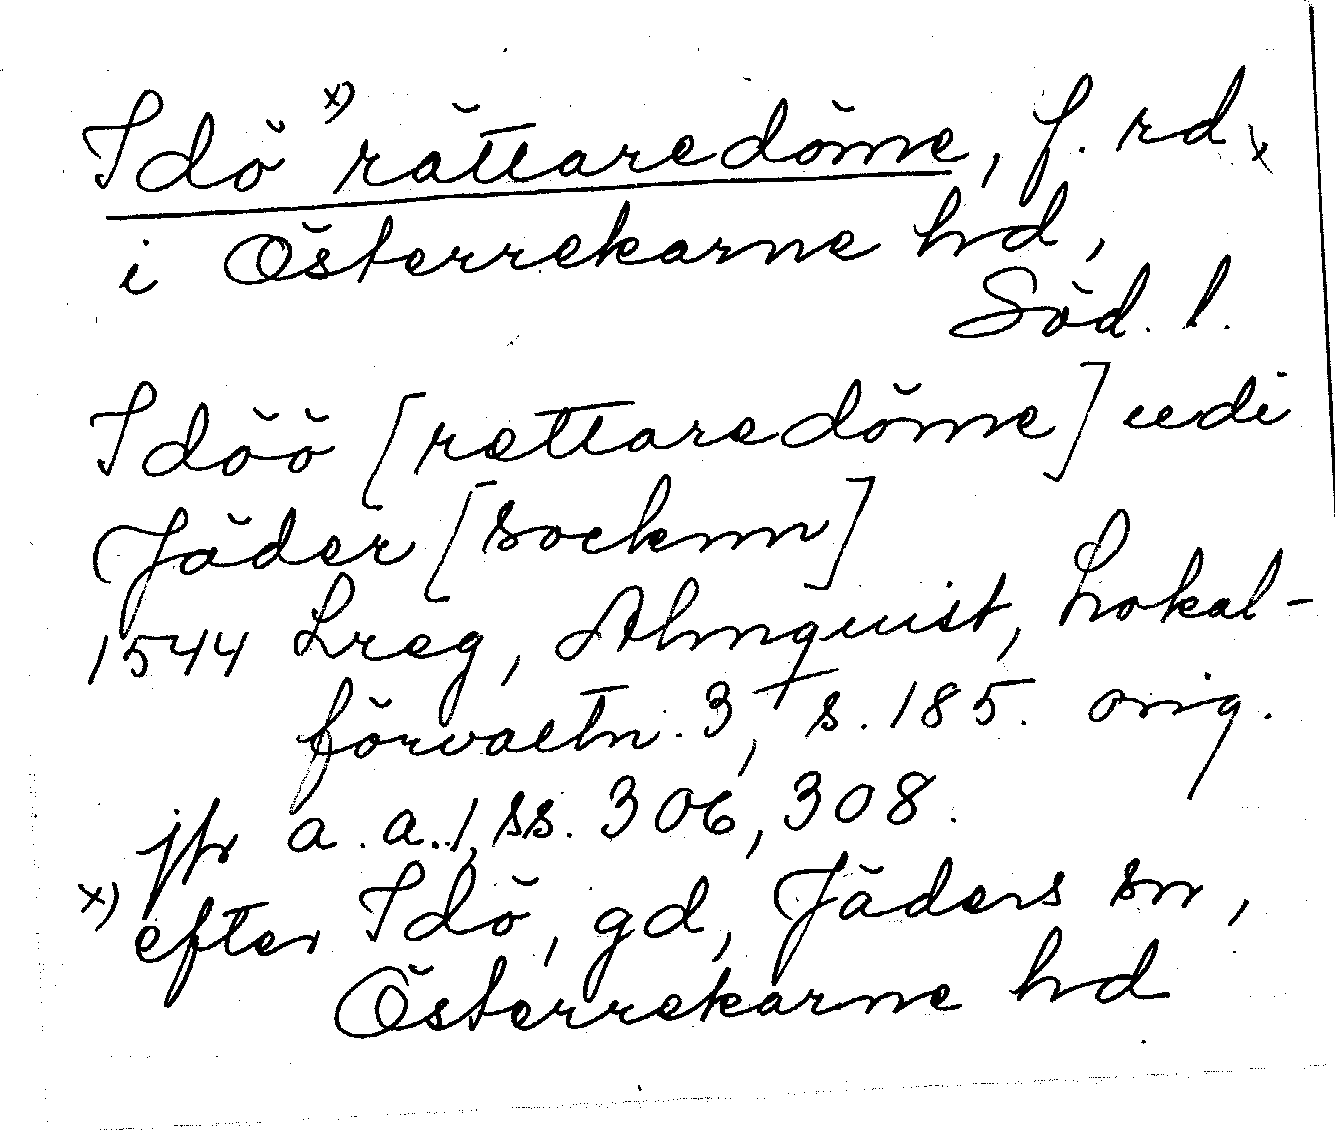 Idö x) rättaredöme, f. rd
i Österrekarne hd,
Söd. l.
Idöö [rettaredöme] udi
Jäder [socknn]
1544 Lreg, Almquist, Lokal-
förvaltn. 3, s. 185. orig.
jfr a. a. 1, ss. 306, 308.
x) efter Idö, gd, Jäders sn,
Österrekarne hd